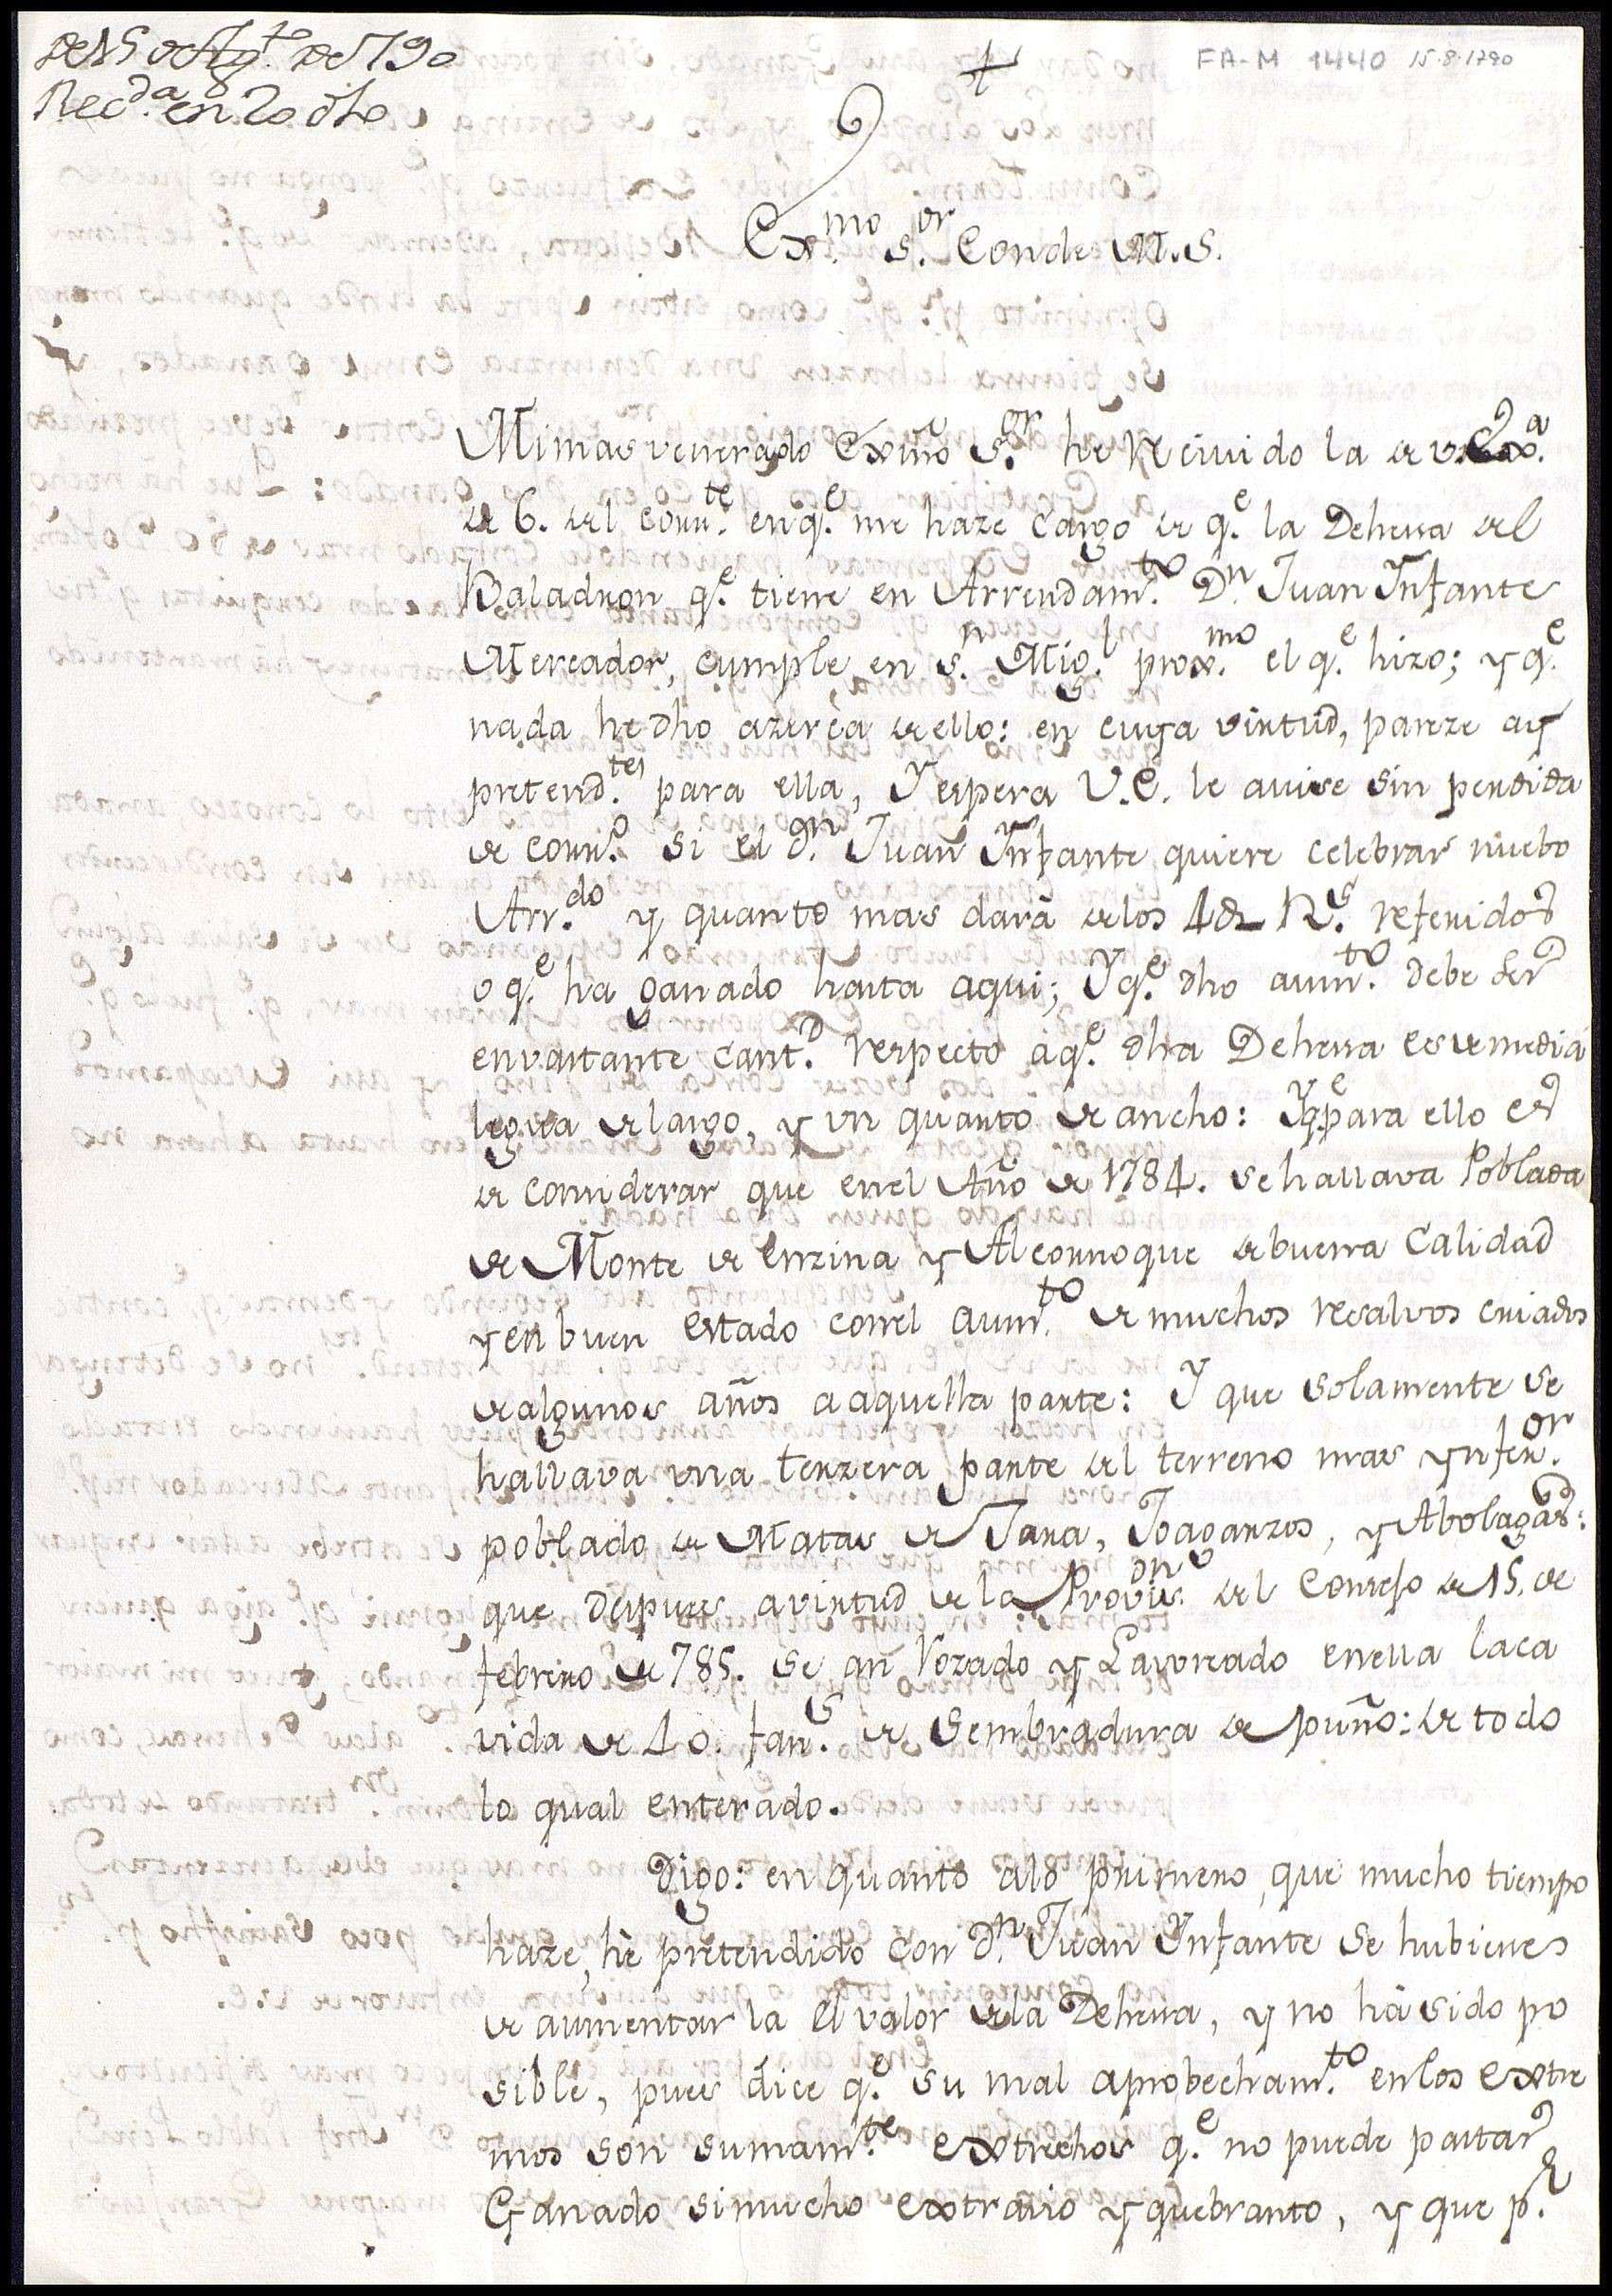 de 15 de Ag.to de 790
Rec.da en 20 dho
FA-M 1440 15.8.1790
Ex.mo s.or Conde M.S.
Mi mas venerado Exmo s.or he recivido la de v. Exa.
de 6. del corr.te en q.e me haze cargo de q.e la Dehesa del
Baladron q.e tiene en Arrendam.to D.n Juan Infante
Mercador, cumple en s.n Mig.l prox.mo el q.e hizo; y q.e
nada he dho azerca de ello: en cuya virtud, pareze ay
pretend.tes para ella, Y espera V.E. le avise sin perdida
de corr.o si el d.n Juan Infante quiere celebrar nuebo
Arr.do y quanto mas darà de los 4 R.s referidos
o q.e ha ganado hasta aqui; Y q.e dho aum.to debe ser
en vastante cant.d respecto à q.e dha Dehesa es de media
legua de largo, y un quarto de ancho: Y q.e para ello es
de considerar que en el Año de 1784. se hallava Poblada
de Monte de Enzina y Alcornoque de buena Calidad
y en buen estado con el aum.to de muchos resalvos criados
de algunos años a aquella parte: Y que solamente se
hallava una terzera parte del terreno mas ynfer.or
poblado de Matas de Jara, Joagarzos, y Abolagas:
que despues a virtud de la Provis.on del Consejo de 15. de
febrero de 785. se an Rozado y Lavoreado en ella la ca
vida de 40. fan.s de sembradura de puño: de todo
lo qual enterado.
Digo: en quanto a lo primero, que mucho tiempo
haze, hè pretendido con d.n Juan Infante se hubiese
de aumentar la el valor de la Dehesa, y no hà sido po
sible, pues dice q.e su mal aprobecham.to en los extre
mos son sumam.te extrechos q.e no puede pastar
Ganado si mucho extravio y quebranto, y que p.r